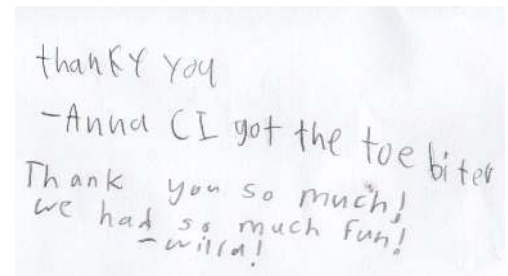 thanKY You
-Anna CI got the toe biter
Thank you so much!
we had so much fun!
-willa!